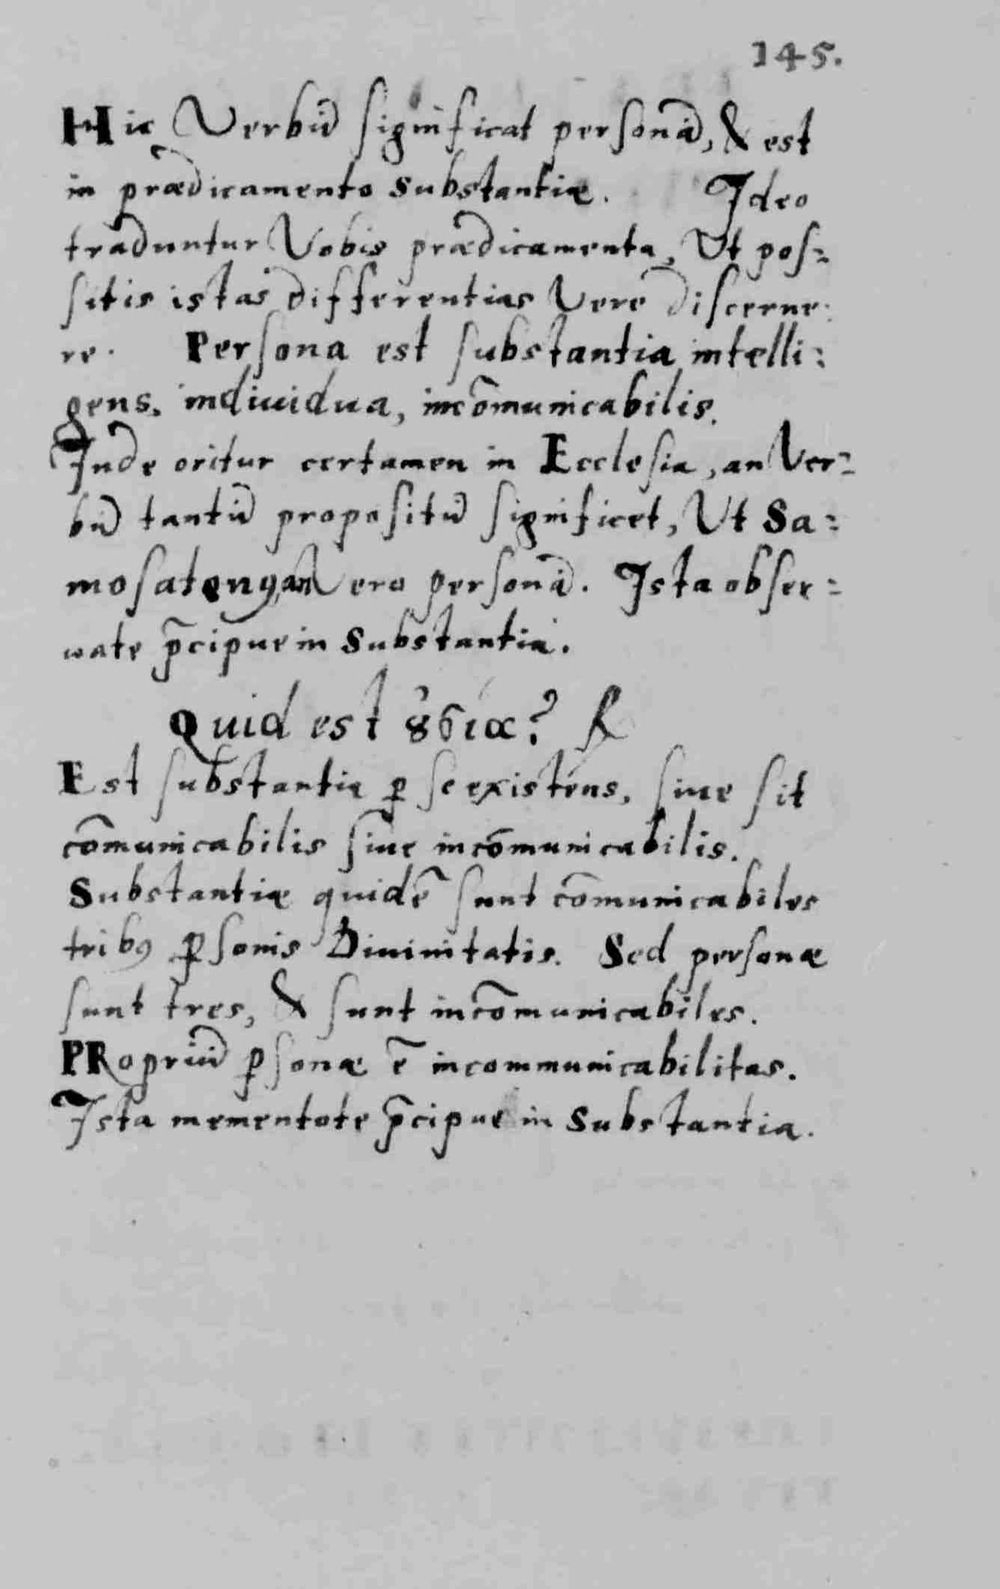 145.
Hic Verbũ significat personã, & est
in prædicamento substantiæ. Ideo
traduntur Vobis prædicamenta, Ut pos=
sitis istas differentias Vere discerne=
re. Persona est substantia intelli=
gens, indiuidua, incõmunicabilis.
Inde oritur certamen in Ecclesia, an Ver=
bũ tantũ propositũ significet, Ut Sa=
mosatenꝰ, an Vero personã. Ista obser=
uate p̃cipue in substantia.
Quid est ȣ̓σία? ℞
Est substantia ꝑ se existens, siue sit
cõmunicabilis siue incõmunicabilis.
Substantiæ quidẽ sunt cõmunicabiles
tribꝰ ꝑsonis Diuinitatis. Sed personæ
sunt tres, & sunt incõmunicabiles.
PRopriũ ꝑsonæ ẽ incommunicabilitas.
Ista mementote p̃cipue in substantia.